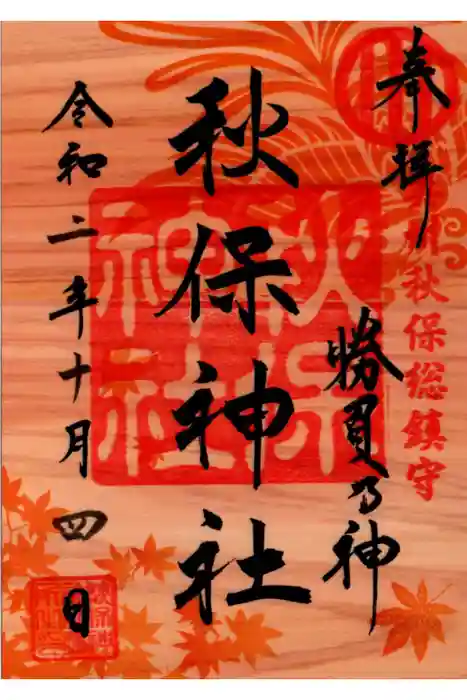 奉拝
秋保総鎮守
勝負乃神
秋保神社
秋保
神社
令和二年十月四日